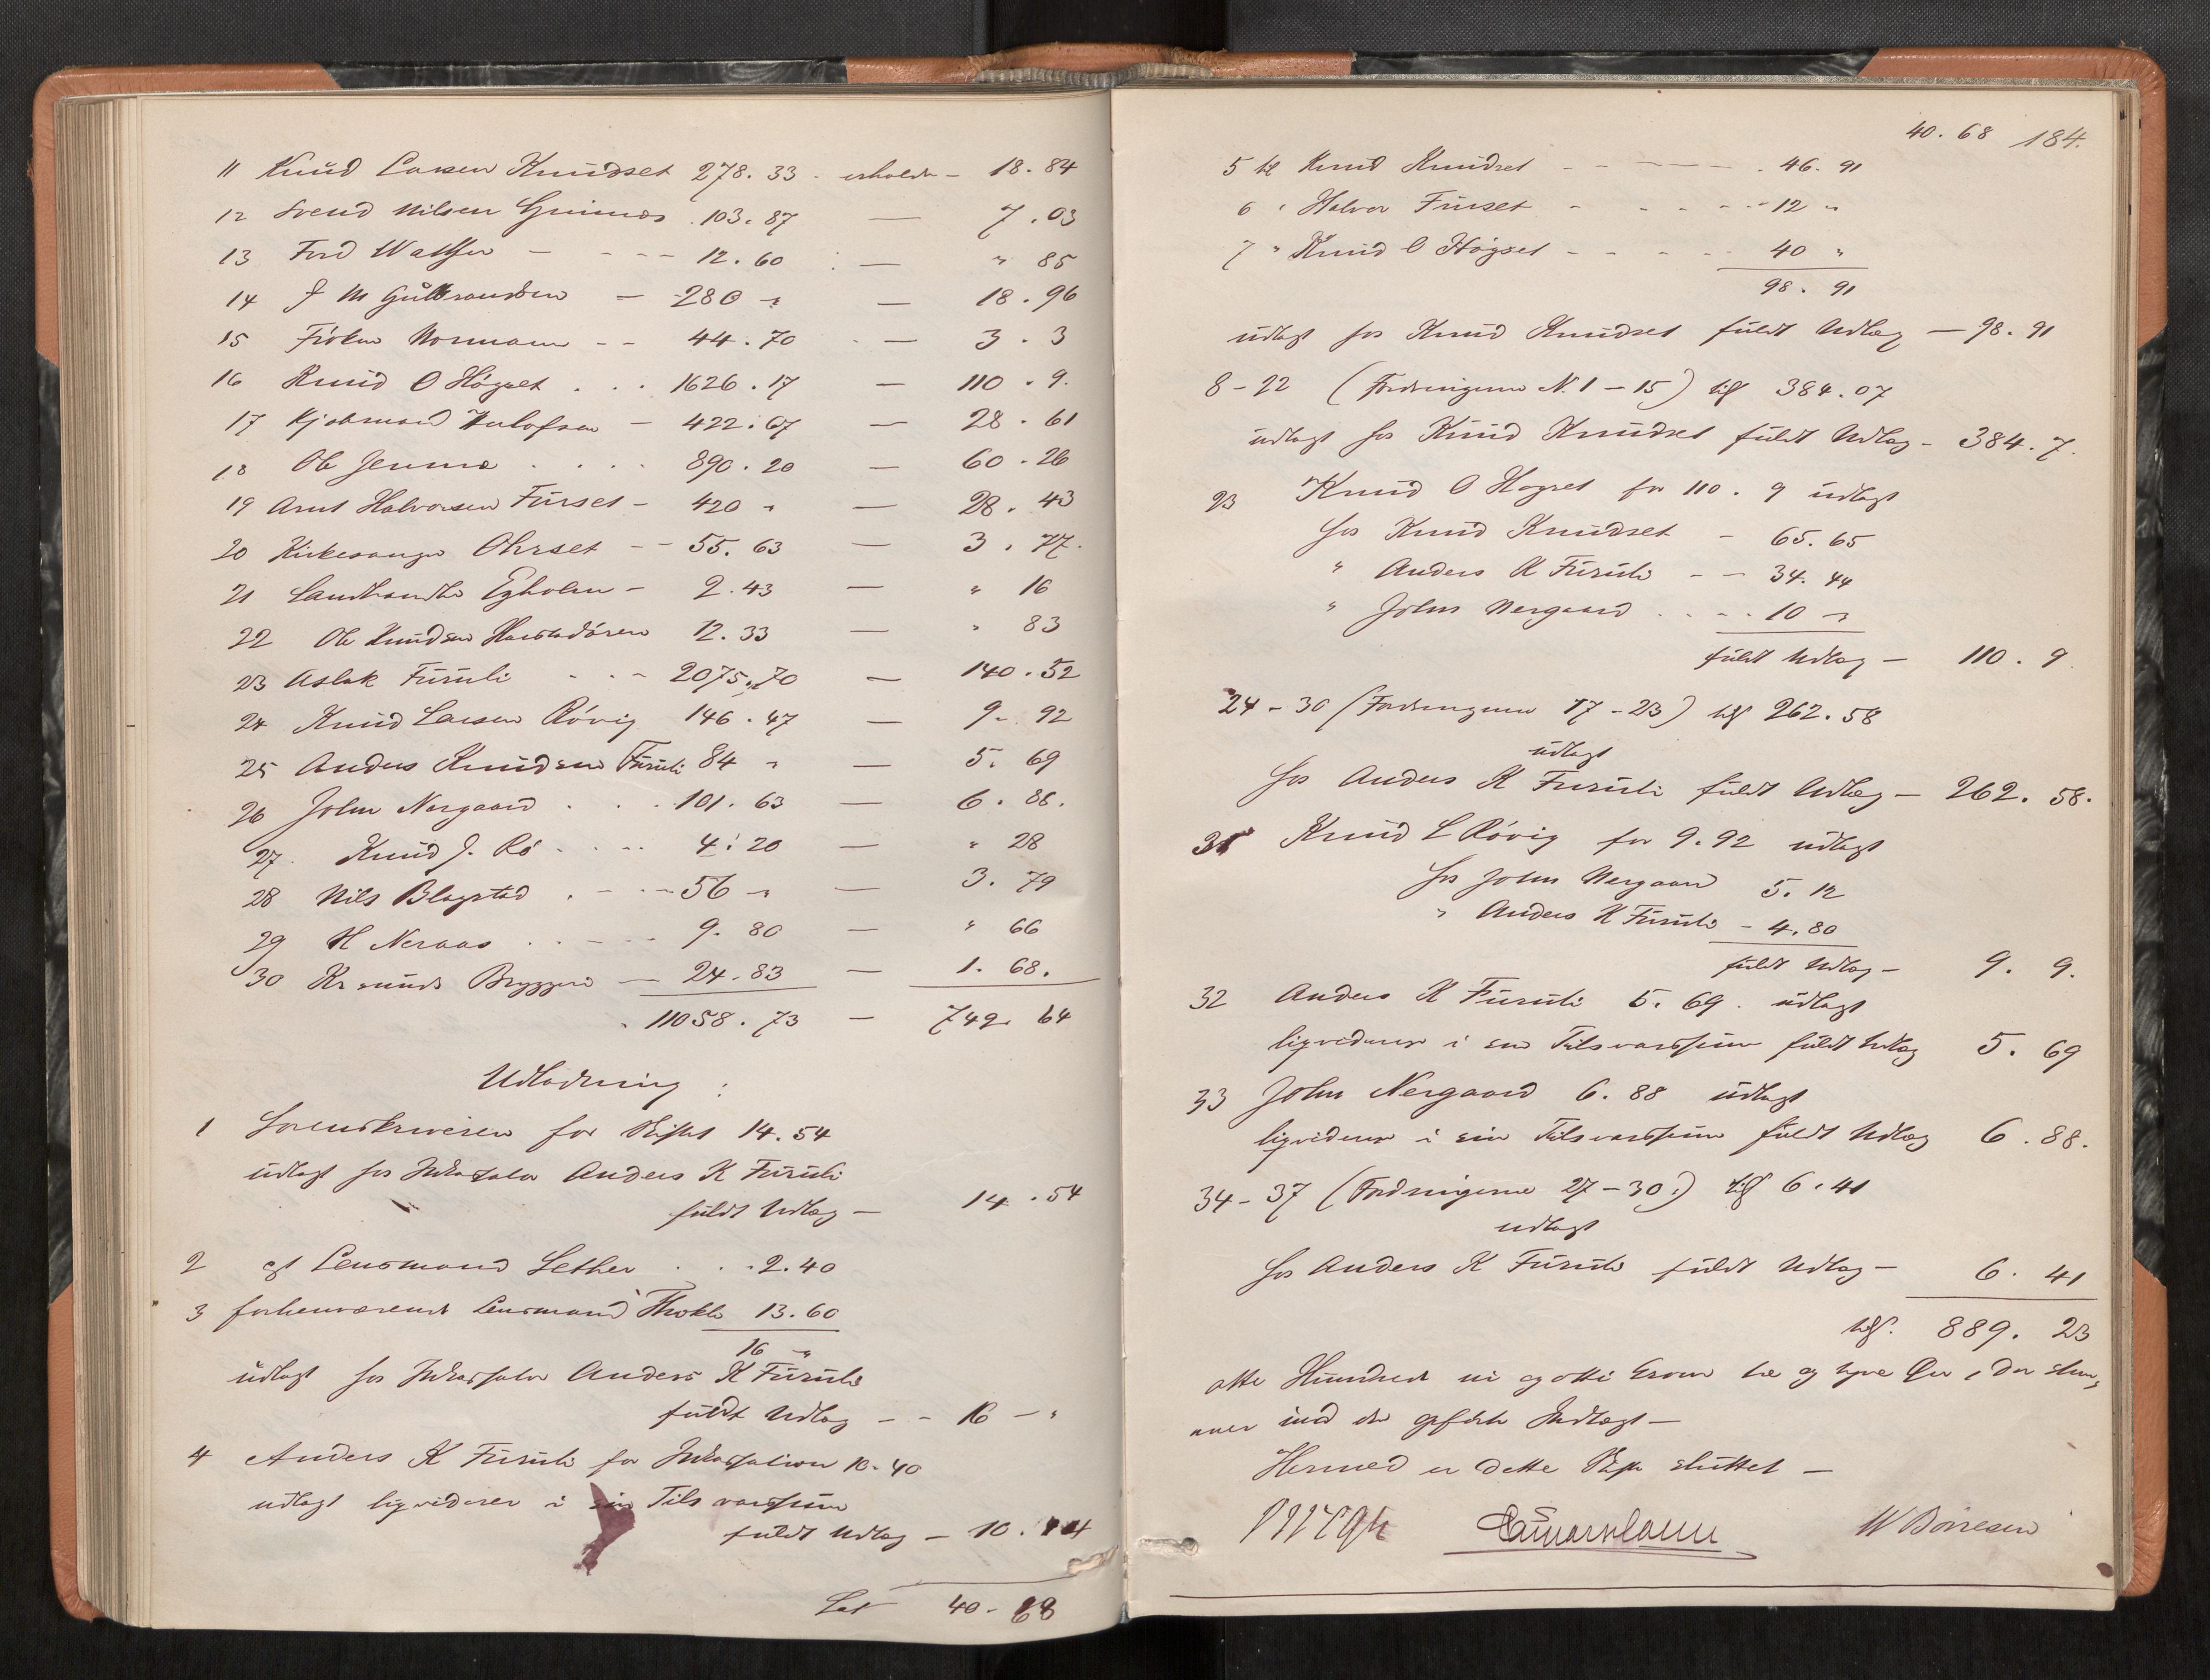 11 Knud Larsen Knudset 278.33 - erholder - 18.84
12 Svend Nilsen Grimnes . 103.87 — 7.03
13 Ford Watthen - - - - 12.60 . — " 85
14 J M Gulbrandsen — 280 " — 18.96
15 Fröken Normann - - 44.70 . — 3.3
16 Knud O Högset . . . 1626.17 — 110.9.
17 Kjöbmand Herlofsen — 422.67 — 28.61
18 Ole Jenma . . . . 890.20 — 60.26
19 Arnt Halvorsen Furset - 420 " — 28.43
20 Kirkesanger Ohrset - - 55.63 — 3.77.
21 Landhandler Egholm - 2.43 — " 16
22 Ole Knudsen 12.33 — " 83
23 Aslak Furuli . - - 2075.70 — 140.52
24 Knud Larsen Rövig 146.47 — 9. 92
25 Anders Knudsen Furuli 84 " — 5.69
26 John Nergaard . . . 101.63 — 6.88.
27. Knud J. Rö . . . . 4.20 — " 28
28 Nils Blagstad . - - - 56 " — 3.79
29 H Neraas . . - - - 9.80 — " 66
30 Krsunds Bryggeri — 24.83 — 1.68.
11058.73 — 749.64
Udlodning :
1 Sorenskriveren for Skiftet 14.54
udlagt hos Inkassator Anders K Furuli
fuldt Udlæg — 14.54
2 cst Lensmand Sether . . . 2.40
3 forhenværende Lensmand 13.60
16 "
udlagt hos Inkassator Anders K Furuli
fuldt Udlæg - - 16 - "
4 Anders K Furuli for Inkassation 10.40
udlagt ligviderer i sin Tilsvarssum
fuldt Udlæg — 10.14
Lat 40 - 68
40.68 184.
5 til Knud Knudset - - - - - . 46.91
6 " Halvor Furset - - - - - 12 "
7 " Knud O Högset - - - - - 40 "
98.91
udlagt hos Knud Knudset fuldt Udlæg — 98.91
8-22 (Fordringerne N. 1-15) tils 384.07
udlagt hos Knud Knudset fuldt Udlæg - 384.7.
23 Knud O Hogset for 110.9 udlagt
hos Knud Knudset - 65.65
" Anders K Furuli - - 34.44
" John Nergaard . . . . 10 "
fuldt Udlæg — 110.9
24-30 (Fordringerne 17-23) tils 262.58
udlagt
hos Anders K Furuli fuldt Udlæg — 262.58.
31 Knud L Rövig for 9.92 udlagt
hos John Nergaard 5.12
" Anders K Furuli - 4.80
fuldt Udlæg - 9.9.
32 Anders K Furuli 5.69. udlagt
ligviderer i sin Tilsvarssum fuldt Udlæg 5.69
33 John Nergaard 6.88 udlagt
ligviderer i sin Tilsvarssum fuldt Udlæg 6.88.
34-37 (Fordringerne 27-30.) tils 6.41
udlagt
hos Anders K Furuli fuldt Udlæg — 6.41
tils. 889.23
otte Hundrede ni og otti Kroner tre og tyve Øre, der stem,
mer med det opförte Indlægt —
Hermed er dette Skifte sluttet —
W Borresen